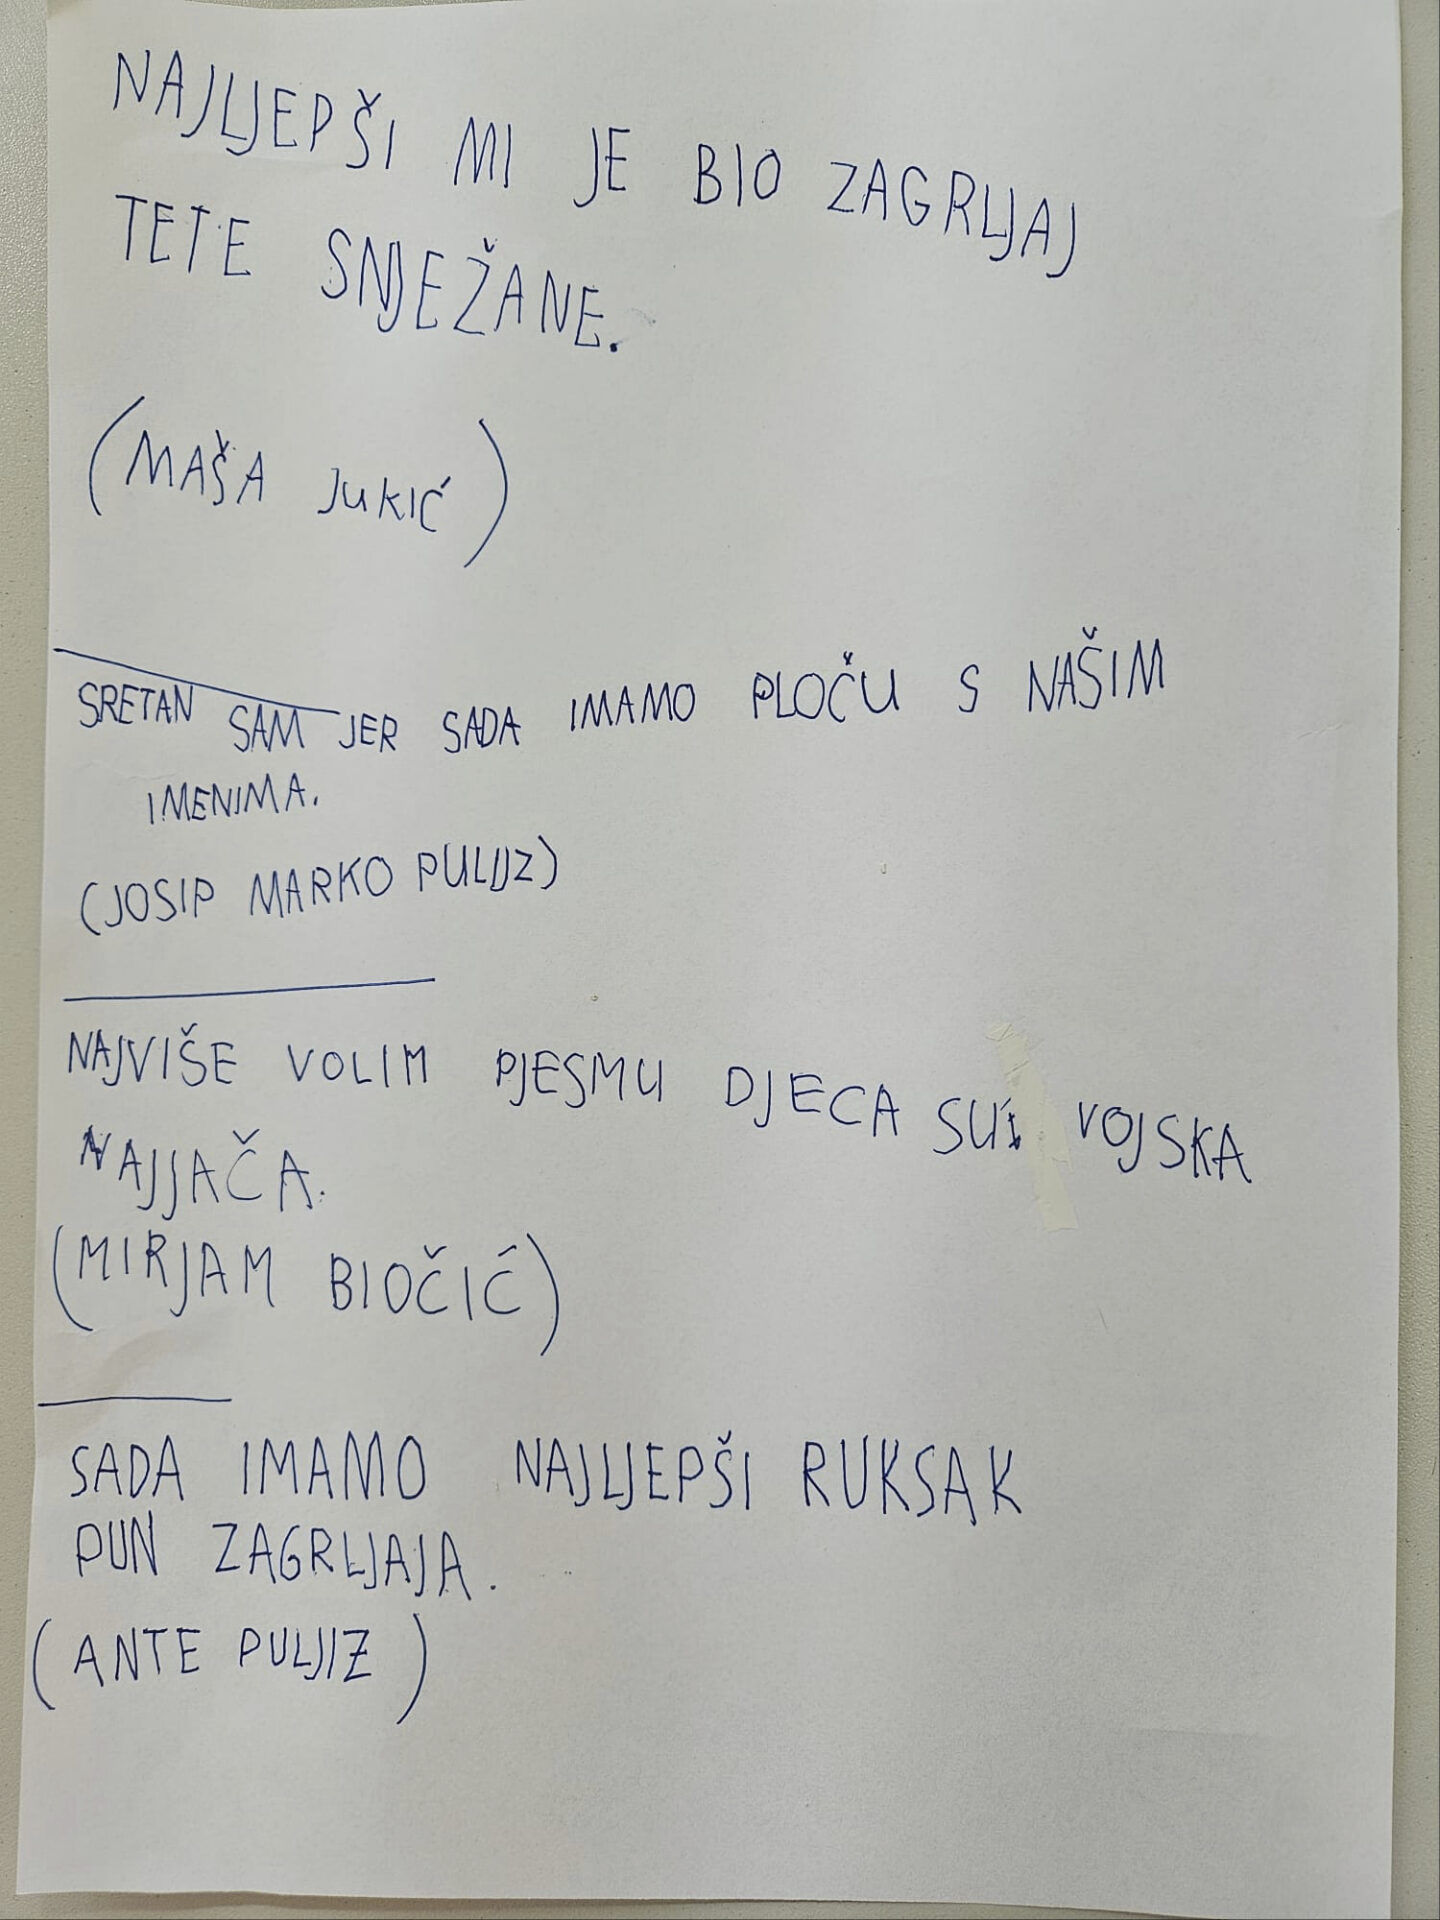 NAJLJEPŠI MI JE BIO ZAGRLJAJ
TETE SNJEŽANE.
(MAŠA JUKIĆ)
SRETAN SAM JER SADA IMAMO PLOČU S NAŠIM
IMENIMA.
(JOSIP MARKO PULJIZ)
NAJVIŠE VOLIM PJESMU DJECA SU VOJSKA
NAJJAČA.
(MIRJAM BIOČIĆ)
SADA IMAMO NAJLJEPŠI RUKSAK
PUN ZAGRLJAJA.
(ANTE PULJIZ)